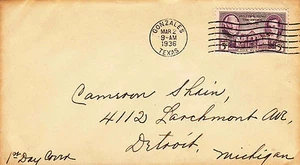 GONZALES
MAR 2
9-AM
1936
TEXAS
Cameron Shain,
4112 Larchmont Ave,
Detroit,
Michigan
1st Day Cover